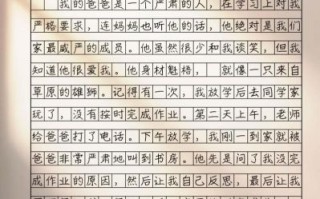 我的爸爸是一个严肃的人，在学习上对我
严格要求，连妈妈也听他的话，他绝对是我们
家最威严的成员。他虽然很少和我谈笑，但我
知道他很爱我。他身材魁梧，就像一只来自
草原的雄狮。记得有一次，我放学后去同学家
玩了，没有按时完成作业。第二天上午，老师
给爸爸打了电话。下午放学，我刚一到家就被
爸爸非常严肃地叫到书房。他先是问了我没完
成作业的原因，然后让我自己反思，最后让我